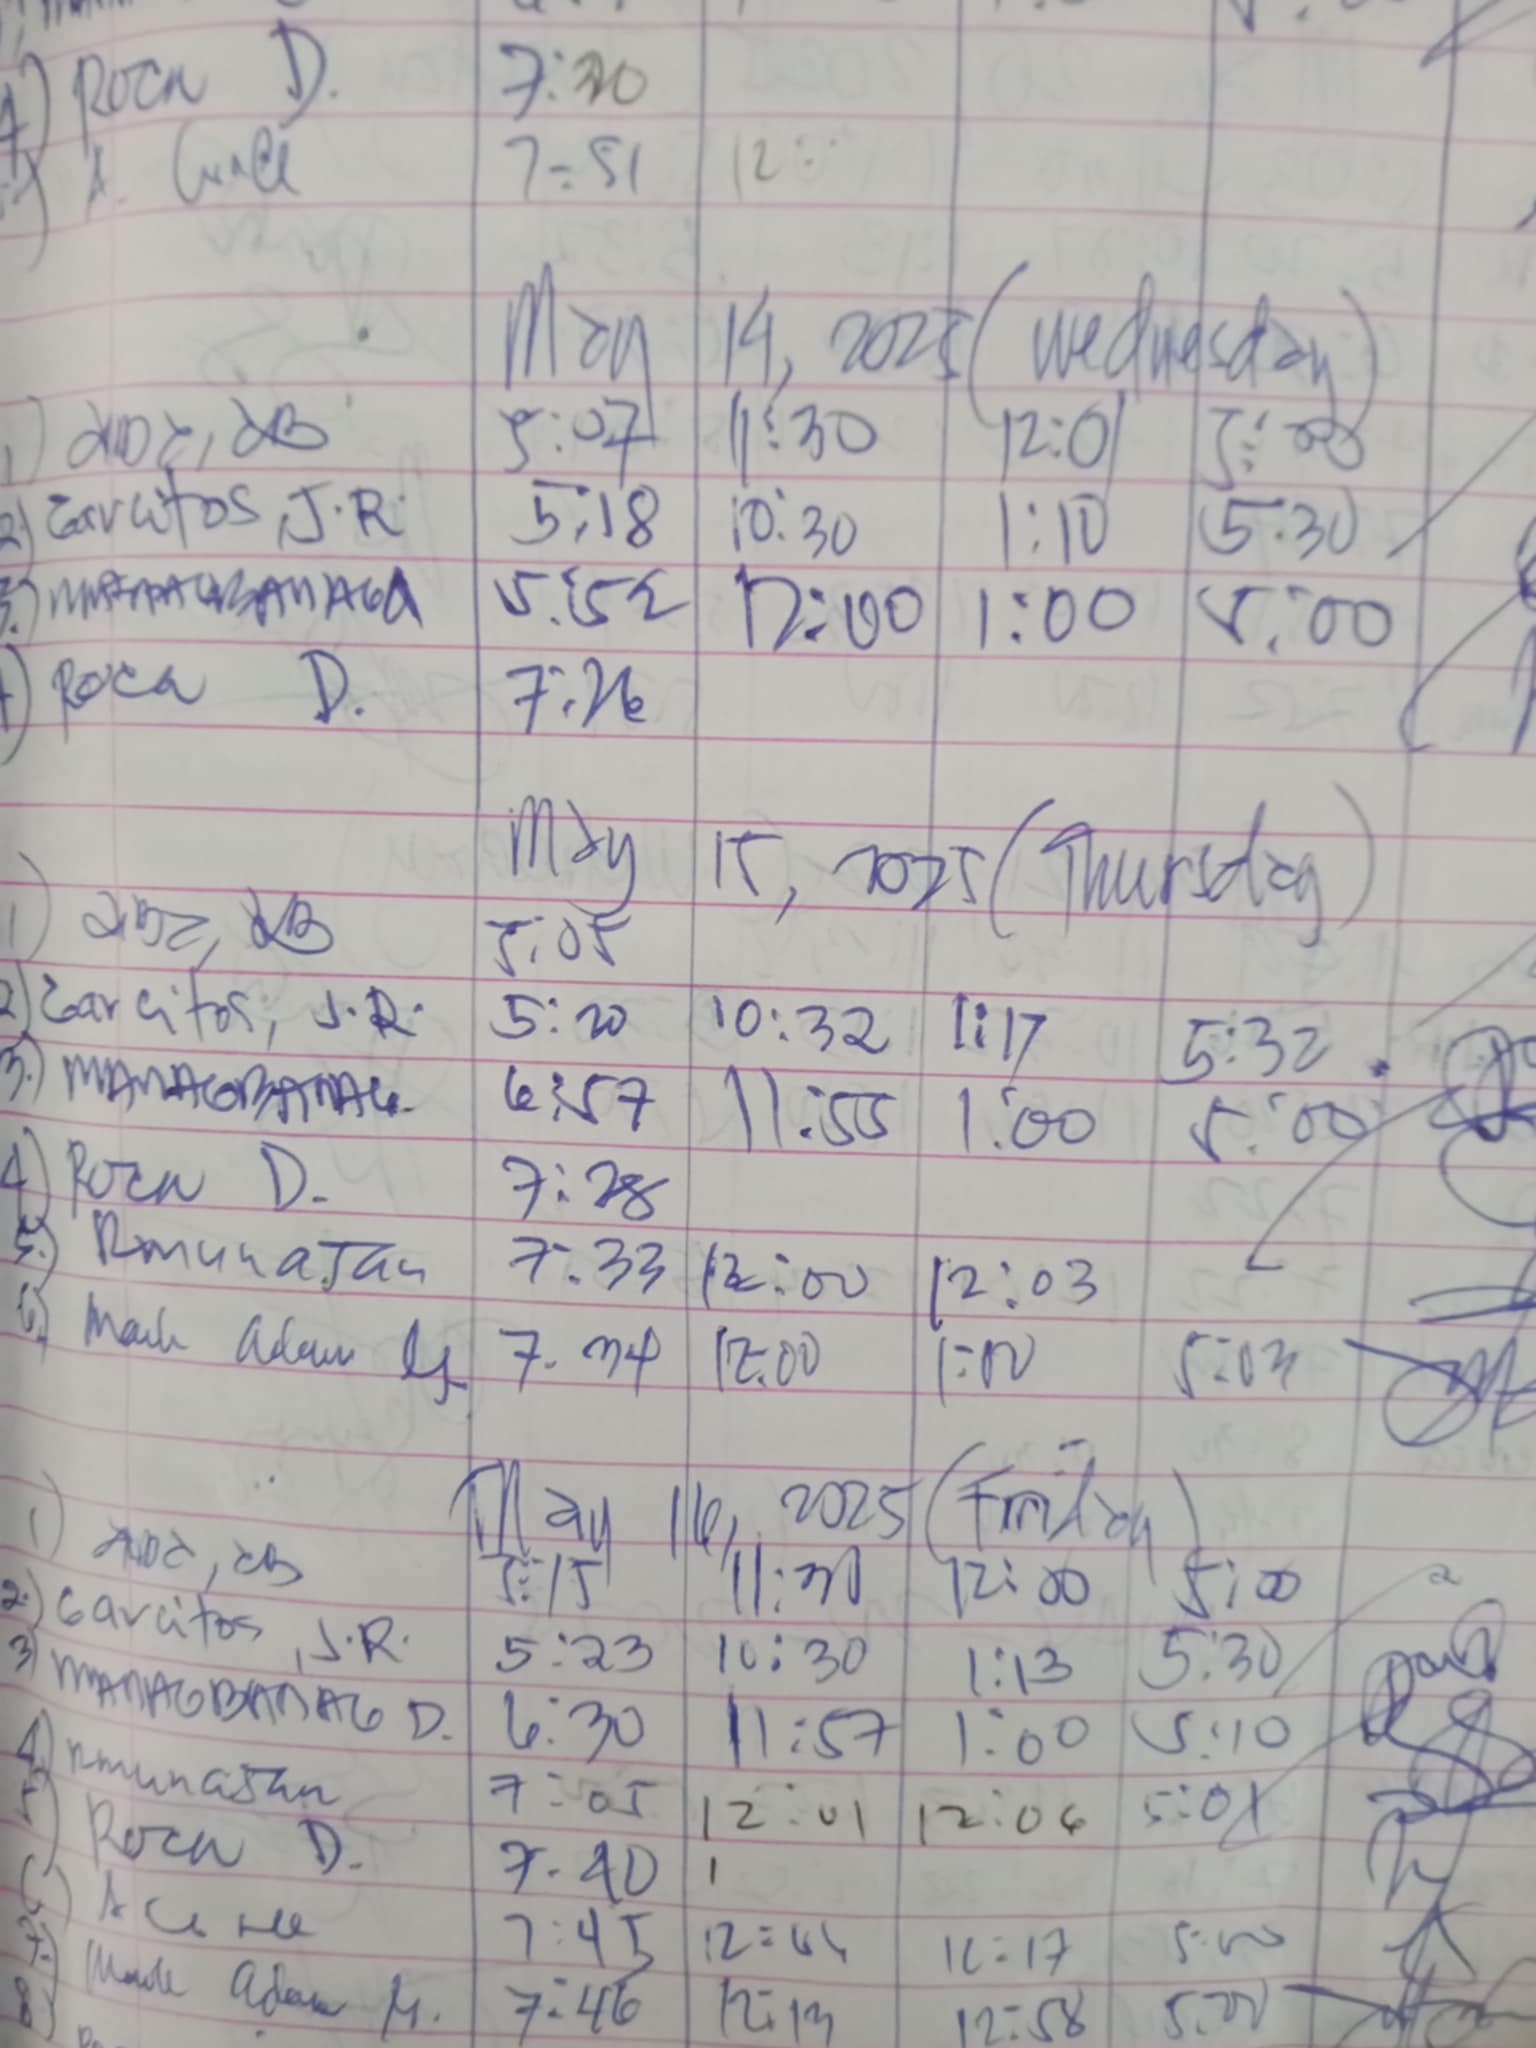 4) Roca D. 7:20
7:51 12:
May 14, 2025 (Wednesday)
1) 5:07 11:30 12:01 5:00
2) Garcitos, J.R. 5:18 10:30 1:10 5:30
3.) MANAGBANAG 5:52 12:00 1:00 5:00
4) Roca D. 7:26
May 15, 2025 (Thursday)
1) 5:05
2) Garcitos, J.R. 5:20 10:32 1:17 5:32
3.) MANAGBANAG. 6:57 11:55 1:00 5:00
4) Roca D. 7:28
5.) Rmunajan 7:33 12:00 12:03
6) Mark Adam 7:34 12:00 1:00 5:03
May 16, 2025 (Friday)
1) 5:15 11:30 12:00 5:00
2.) Garcitos, J.R. 5:23 10:30 1:13 5:30
3) MANAGBANAG D. 6:30 11:57 1:00 5:10
4) Rmunajan 7:05 12:01 12:06 5:01
5) Roca D. 7:40
6) A 7:45 12:17 5:00
7. Mark Adam M. 7:46 12:13 12:58 5:00
8)